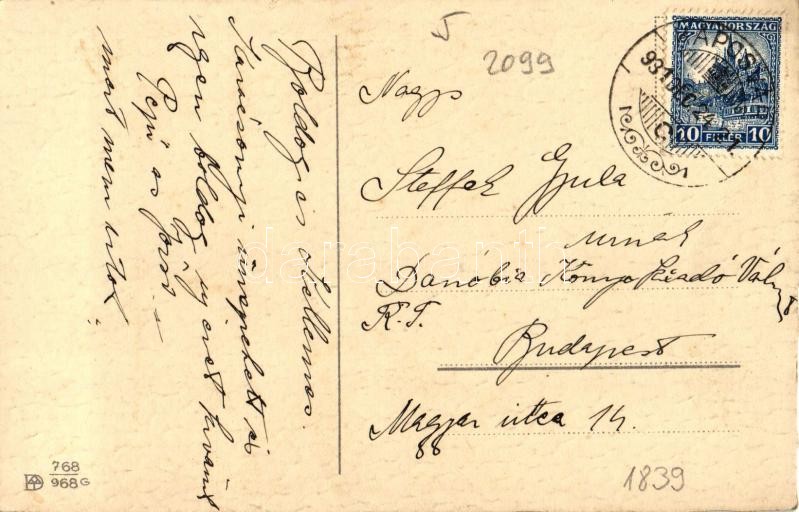 Boldog és kellemes
karácsonyi ünnepeket és
igen boldog új évet kíván
Pepi és
mert nem írtok
5
2099
Nagys
Steffek Gyula
urnak
Danóbia Könyvkiadó Váll
R.T.
Budapest
Magyar utca 14.
88
1839
768
968 G
MAGYARORSZÁG
10 FILLÉR 10
931 DEC 24
darabanth